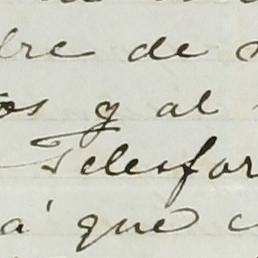 dre de
os y al
Telesfor
á que